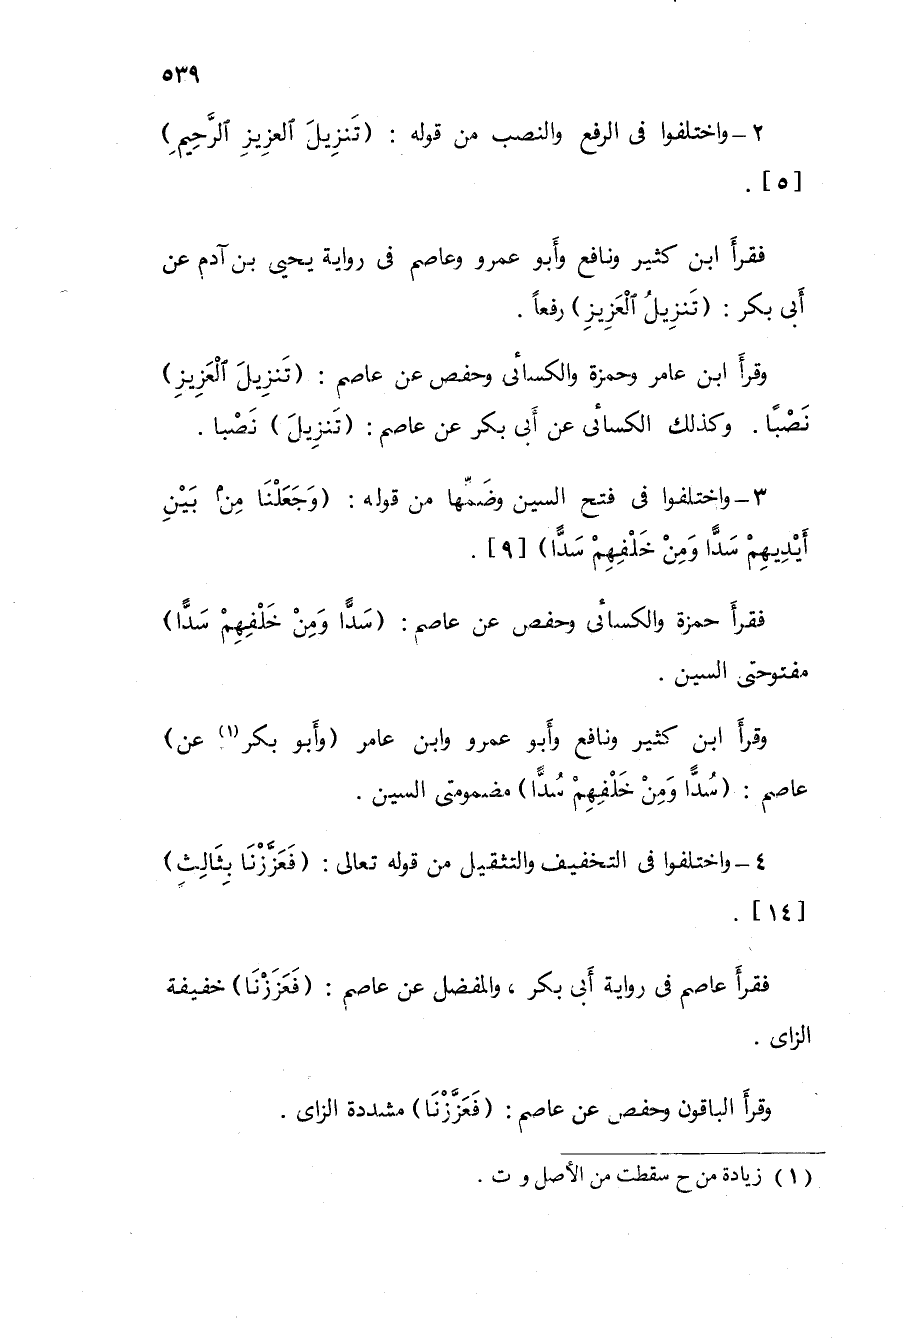 ٥٣٩
٢ – واختلفوا فى الرفع والنصب من قوله : (تَنزِيلَ ٱلعزِيزِ ٱلرَّحِيمِ)
[٥] .
فقرأَ ابن كثير ونافع وأَبو عمرو وعاصم فى رواية يحيى بن آدم عن
أَبى بكر : (تَنزِيلُ ٱلْعَزِيزِ) رفعاً .
وقرأَ ابن عامر وحمزة والكسائى وحفص عن عاصم : (تَنزِيلَ ٱلْعَزِيزِ)
نَصْبًا . وكذلك الكسائى عن أَبى بكر عن عاصم : (تَنزِيلَ) نَصْبا .
٣ – واختلفوا فى فتح السين وضَمِّها من قوله : (وَجَعَلْنَا مِنۢ بَيْنِ
أَيْدِيهِمْ سَدًّا وَمِنْ خَلْفِهِمْ سَدًّا) [٩] .
فقرأَ حمزة والكسائى وحفص عن عاصم : (سَدًّا وَمِنْ خَلْفِهِمْ سَدًّا)
مفتوحتى السين .
وقرأَ ابن كثير ونافع وأَبو عمرو وابن عامر (وأَبو بكر(١) عن)
عاصم : (سُدًّا وَمِنْ خَلْفِهِمْ سُدًّا) مضمومتى السين .
٤ – واختلفوا فى التخفيف والتثقيل من قوله تعالى : (فَعَزَّزْنَا بِثَالِثٍ)
[١٤] .
فقرأَ عاصم فى رواية أَبى بكر ، والمفضل عن عاصم : (فَعَزَزْنَا) خفيفة
الزاى .
وقرأَ الباقون وحفص عن عاصم : (فَعَزَّزْنَا) مشددة الزاى .
(١) زيادة من ح سقطت من الأصل و ت .